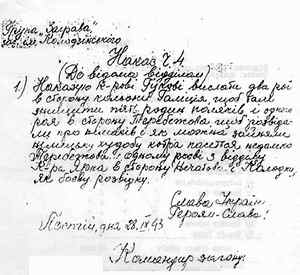 Група "Заграва"
загін ім. Колодзінського
Наказ ч. 4
(До відома відділам)
1.) Наказую к-рові Гукові вислати два рої
в сторону кольонії Галіція щоб там
знищити п'ять родин поляків і одного
роя в сторону щоб розвіда-
ти про німаків і як можна зайняти
німецьку худобу котра пасется недалеко
і одному роєві з відділу
К-ра Ярка в сторону і Колодки,
як боєву розвідку.
Слава Україні
Героям Слава!
Постій, дня 28. IV 43
Командир загону.